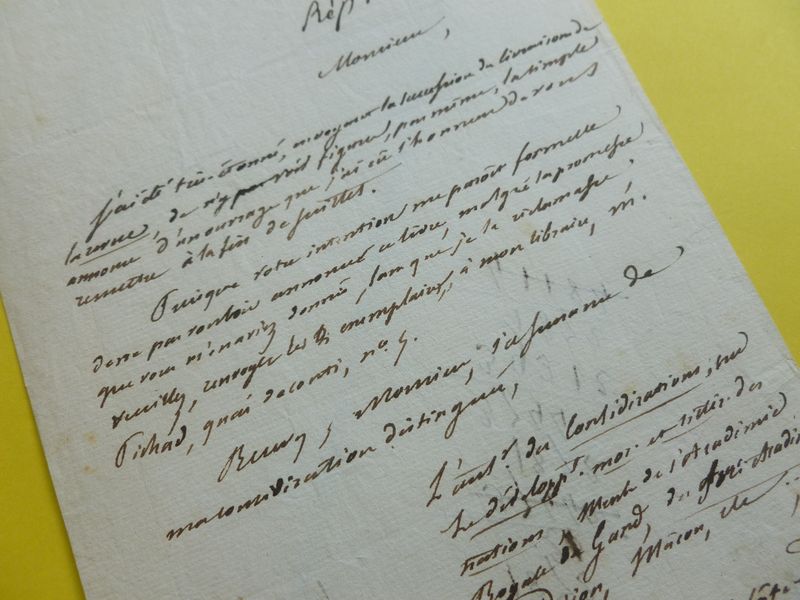 Rép
Monsieur,
J'ai été très-étonné, en voyant la succession de livraisons de
la revue, de n'y pas voir figurer, pas même, la simple
annonce d'un ouvrage que j'ai eu l'honneur de vous
remettre à la fin de juillet.
Puisque votre intention me paroît formelle
de ne pas vouloir annoncer ce livre, malgré la promesse
que vous m'en aviez donné, sans que je la réclamasse,
veuillez, renvoyer les exemplaires, à mon libraire, M.
Pichad, quai de conti, no. 5.
Recevez, Monsieur, l'assurance de
ma considération distinguée,
L'aut. du Considérations, sur
Le développt. mor. et littér. des
nations, Memb. de l'Académie
Royale de Gand, des Acad
Mâcon, etc